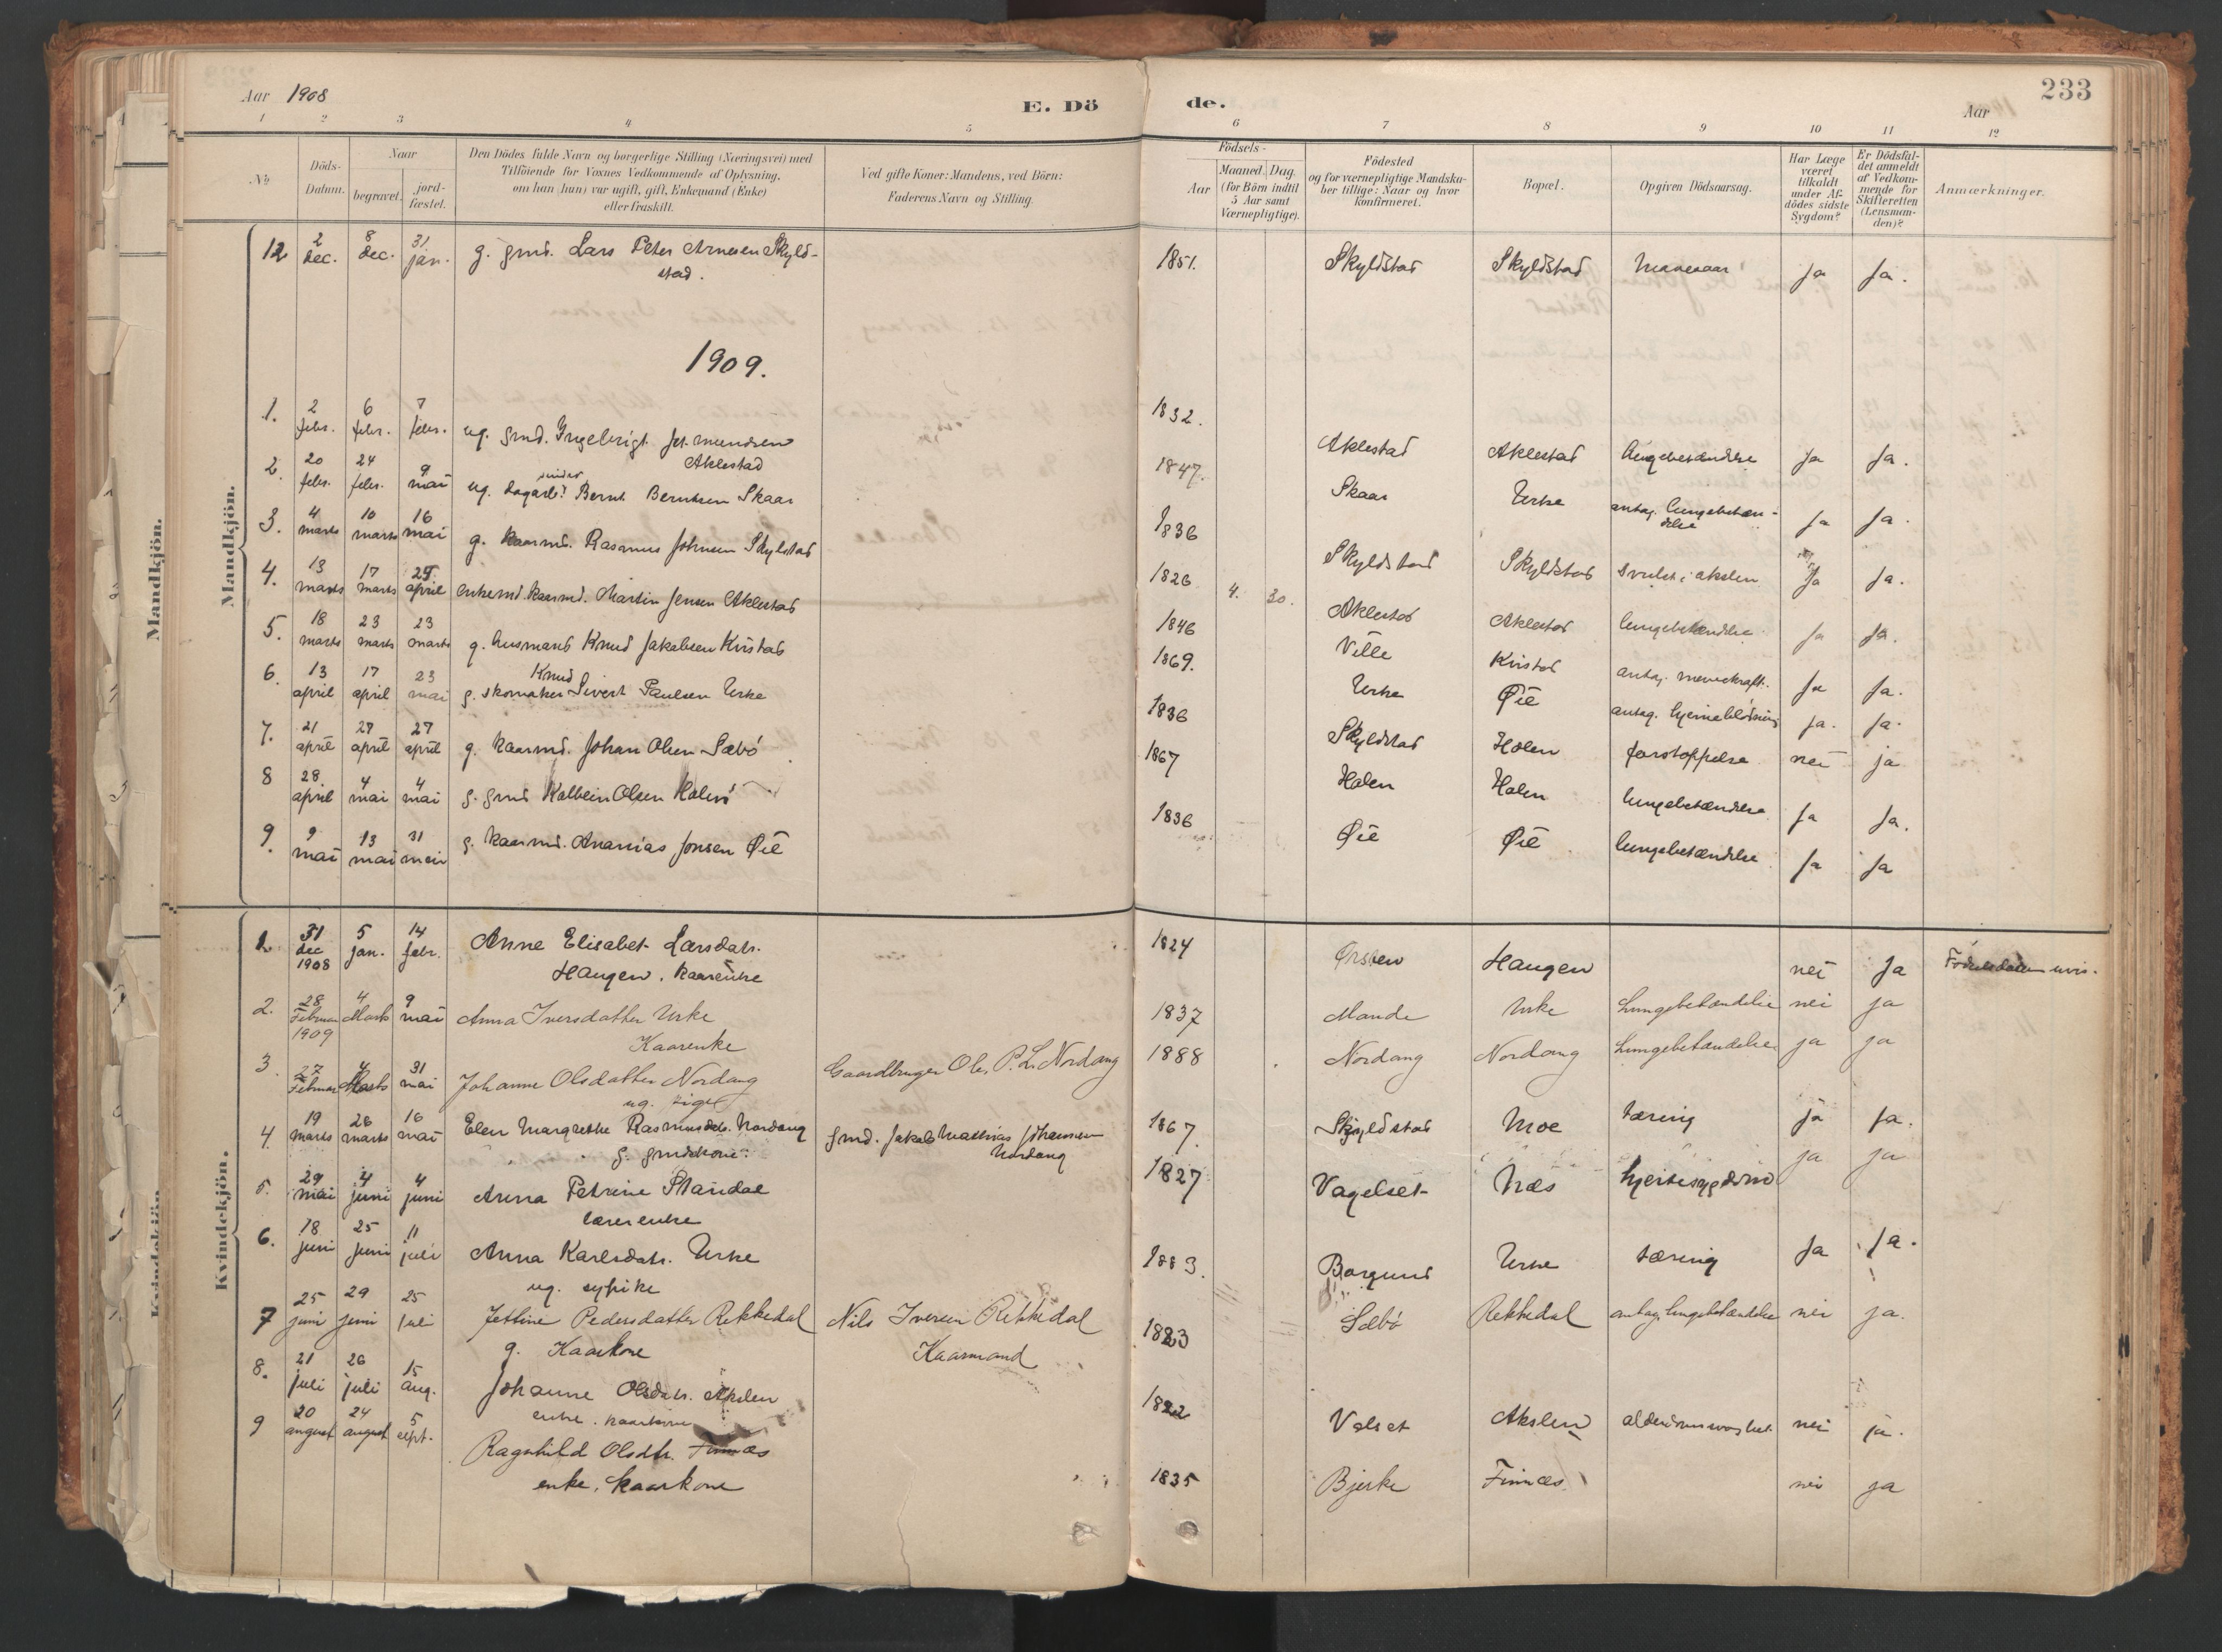 Aar 1908
E. Dö
de.
Aar
233
1 2 3 4 5 6 7 8 9 10 11 12
№
Döds-Datum.
Naar
begravet.
jord-fæstet.
Den Dödes fulde Navn og borgerlige Stilling (Næringsvei) med
Tilföiende for Voxnes Vedkommende af Oplysning,
om han (hun) var ugift, gift, Enkemand (Enke)
eller fraskilt.
Ved gifte Koner: Mandens, ved Börn:
Faderens Navn og Stilling.
Födsels-
Aar
Maaned. Dag.
(for Börn indtil
5 Aar samt
Værnepligtige).
Födested
og for værnepligtige Mandska-
ber tillige: Naar og hvor
konfirmeret.
Bopæl.
Opgiven Dödsaarsag.
Har Læge
været
tilkaldt
under Af-
dödes sidste
Sygdom?
Er Dödsfal-
det anmeldt
af Vedkom-
mende for
Skifteretten
(Lensman-
den)?
Anmærkninger.
Mandkjön.
Mandkjön.
12 2 dec. 8 dec. 31 jan. g. grmd. Lars Peter Arnesen Skyld-
stad. 1851. Skyldstad Skyldstad Mavesaar ja ja.
1909.
1. 2 febr. 6 febr. 7 febr. ug. grmd. Ingebrigt
Aklestad 1832. Aklestad Aklestad lungebetændelse ja ja.
2. 20 febr. 24 febr. 9 mai ug. dagarb. Bernt Berntsen Skaar 1847. Skaar Urke antag. lungebetæn-
delse ja ja.
3. 4 marts 10 marts 16 mai g. kaarmd. Rasmus Johnsen Skylstad 1836 Skyldstad Skyldstad svulst i akslen ja ja.
4. 13 marts 17 marts 25 april enkemd. kaarmd. Martin Jensen Aklestad 1826 4. 30. Aklestad Aklestad lungebetændelse ja ja.
5. 18 marts 23 marts 23 marts g. husmand Knud Jakobsen Kvistad 1846 Velle Kvistad antag. mavekræft. ja ja.
6. 13 april 17 april 23 mai Knud
g. skomaker Sivert Paulsen Urke 1869. Urke Øie antag. hjerneblödning ja. ja.
7. 21 april 27 april 27 april g. kaarmd. Johan Olsen Sæbö 1836 Skyldstad Holen forstoppelse nei ja
8 28. april 4 mai 4 mai g. grmd Kolbein Olsen Holen 1867 Holen Holen lungebetændelse ja ja.
9. 9 mai 13 mai 31 mai g. kaarmd. Ananias Jonsen Øie 1836 Øie Øie lungebetændelse ja ja
Kvindekjön.
Kvindekjön.
1. 31 dec 1908 5 jan. 14 febr. Anne Elisabet Larsdatr.
Haugen. kaarenke 1824 Ørsten Haugen nei ja Födselsdatum uvis.
2. 28 Februar 1909 4 Marts 9 mai Anna Iversdatter Urke
Kaarenke 1837 Mande Urke Lungebetændelse nei ja
3. 27 Februar 4 Marts 31 mai Johanne Olsdatter Nordang
ug. pige Gaardbruger Ole P. L. Nordang 1888 Nordang Nordang Lungebetændelse ja ja
4. 19 marts 26 marts 16 mai Elen Margrethe Rasmusdatr. Nordang
g. grmdskone. grmd. Jakob Mathias Johannesen
Nordang 1867. Skyldstad Moe tæring ja ja.
5. 29 mai 4 juni 4 juni Anna Petrine Standal
lærerenke 1827 Vagelset Næs hjertesygdom ja ja
6. 18 juni 25 juni 11 juli Anna Karlsdatr. Urke
ug. sypike 1883. Borgund Urke tæring ja ja.
7 25 juni 29 juni 25 juli Jettine Pedersdatter Rekkedal
g. Kaarkone Nils Iversen Rekkedal
Kaarmand 1823 Sæbö Rekkedal antag. lungebetændelse nei ja.
8. 21 juli 26 juli 15 aug. Johanne Olsdatr. Akslen
enke. kaarkone 1822 Velset Akslen alderdomssvaghet nei ja.
9 20 august 24 august 5 sept. Ragnhild Olsdtr. Finnæs
enke. kaarkone 1835 Bjerke Finnæs nei ja